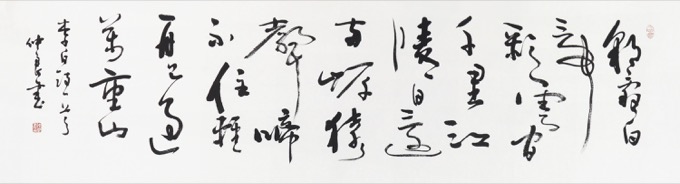 朝辭白
帝
彩雲間
千里江
陵一日還
兩岸猿
聲啼
不住輕
舟已過
萬重山
李白詩一首
仲書